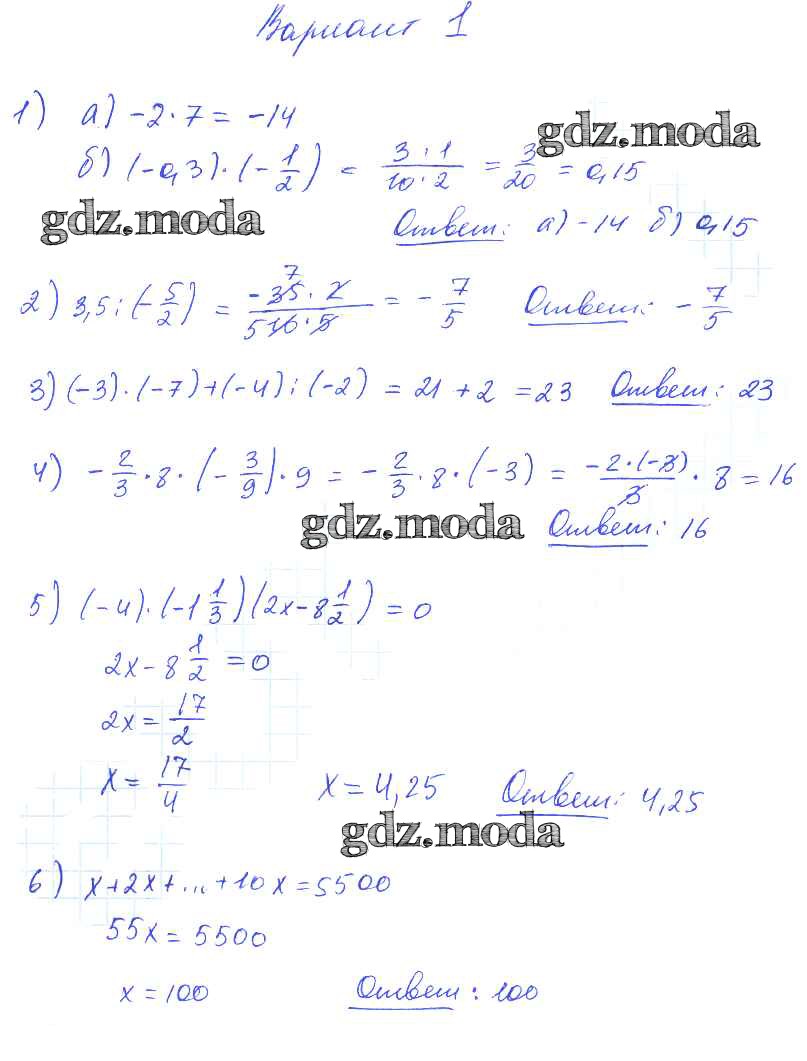 Вариант 1
1) а) -2·7 = -14
gdz.moda
б) (-0,3)·(-1/2) = 3·1/10·2 = 3/20 = 0,15
gdz.moda
Ответ: а) -14 б) 0,15
2) 3,5:(-5/2) = -35·2/10·5 = -7/5 Ответ: -7/5
3) (-3)·(-7)+(-4):(-2) = 21 + 2 = 23 Ответ: 23
4) -2/3·8·(-3/9)·9 = -2/3·8·(-3) = -2·(-3)/3·8 = 16
gdz.moda
Ответ: 16
5) (-4)·(-1 1/3)(2x-8 1/2) = 0
2x-8 1/2 = 0
2x = 17/2
x = 17/4 x = 4,25 Ответ: 4,25
gdz.moda
6) x+2x+...+10x = 5500
55x = 5500
x = 100 Ответ: 100